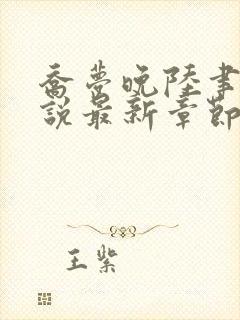 乔梦晚陆聿
说最新章节
王紫